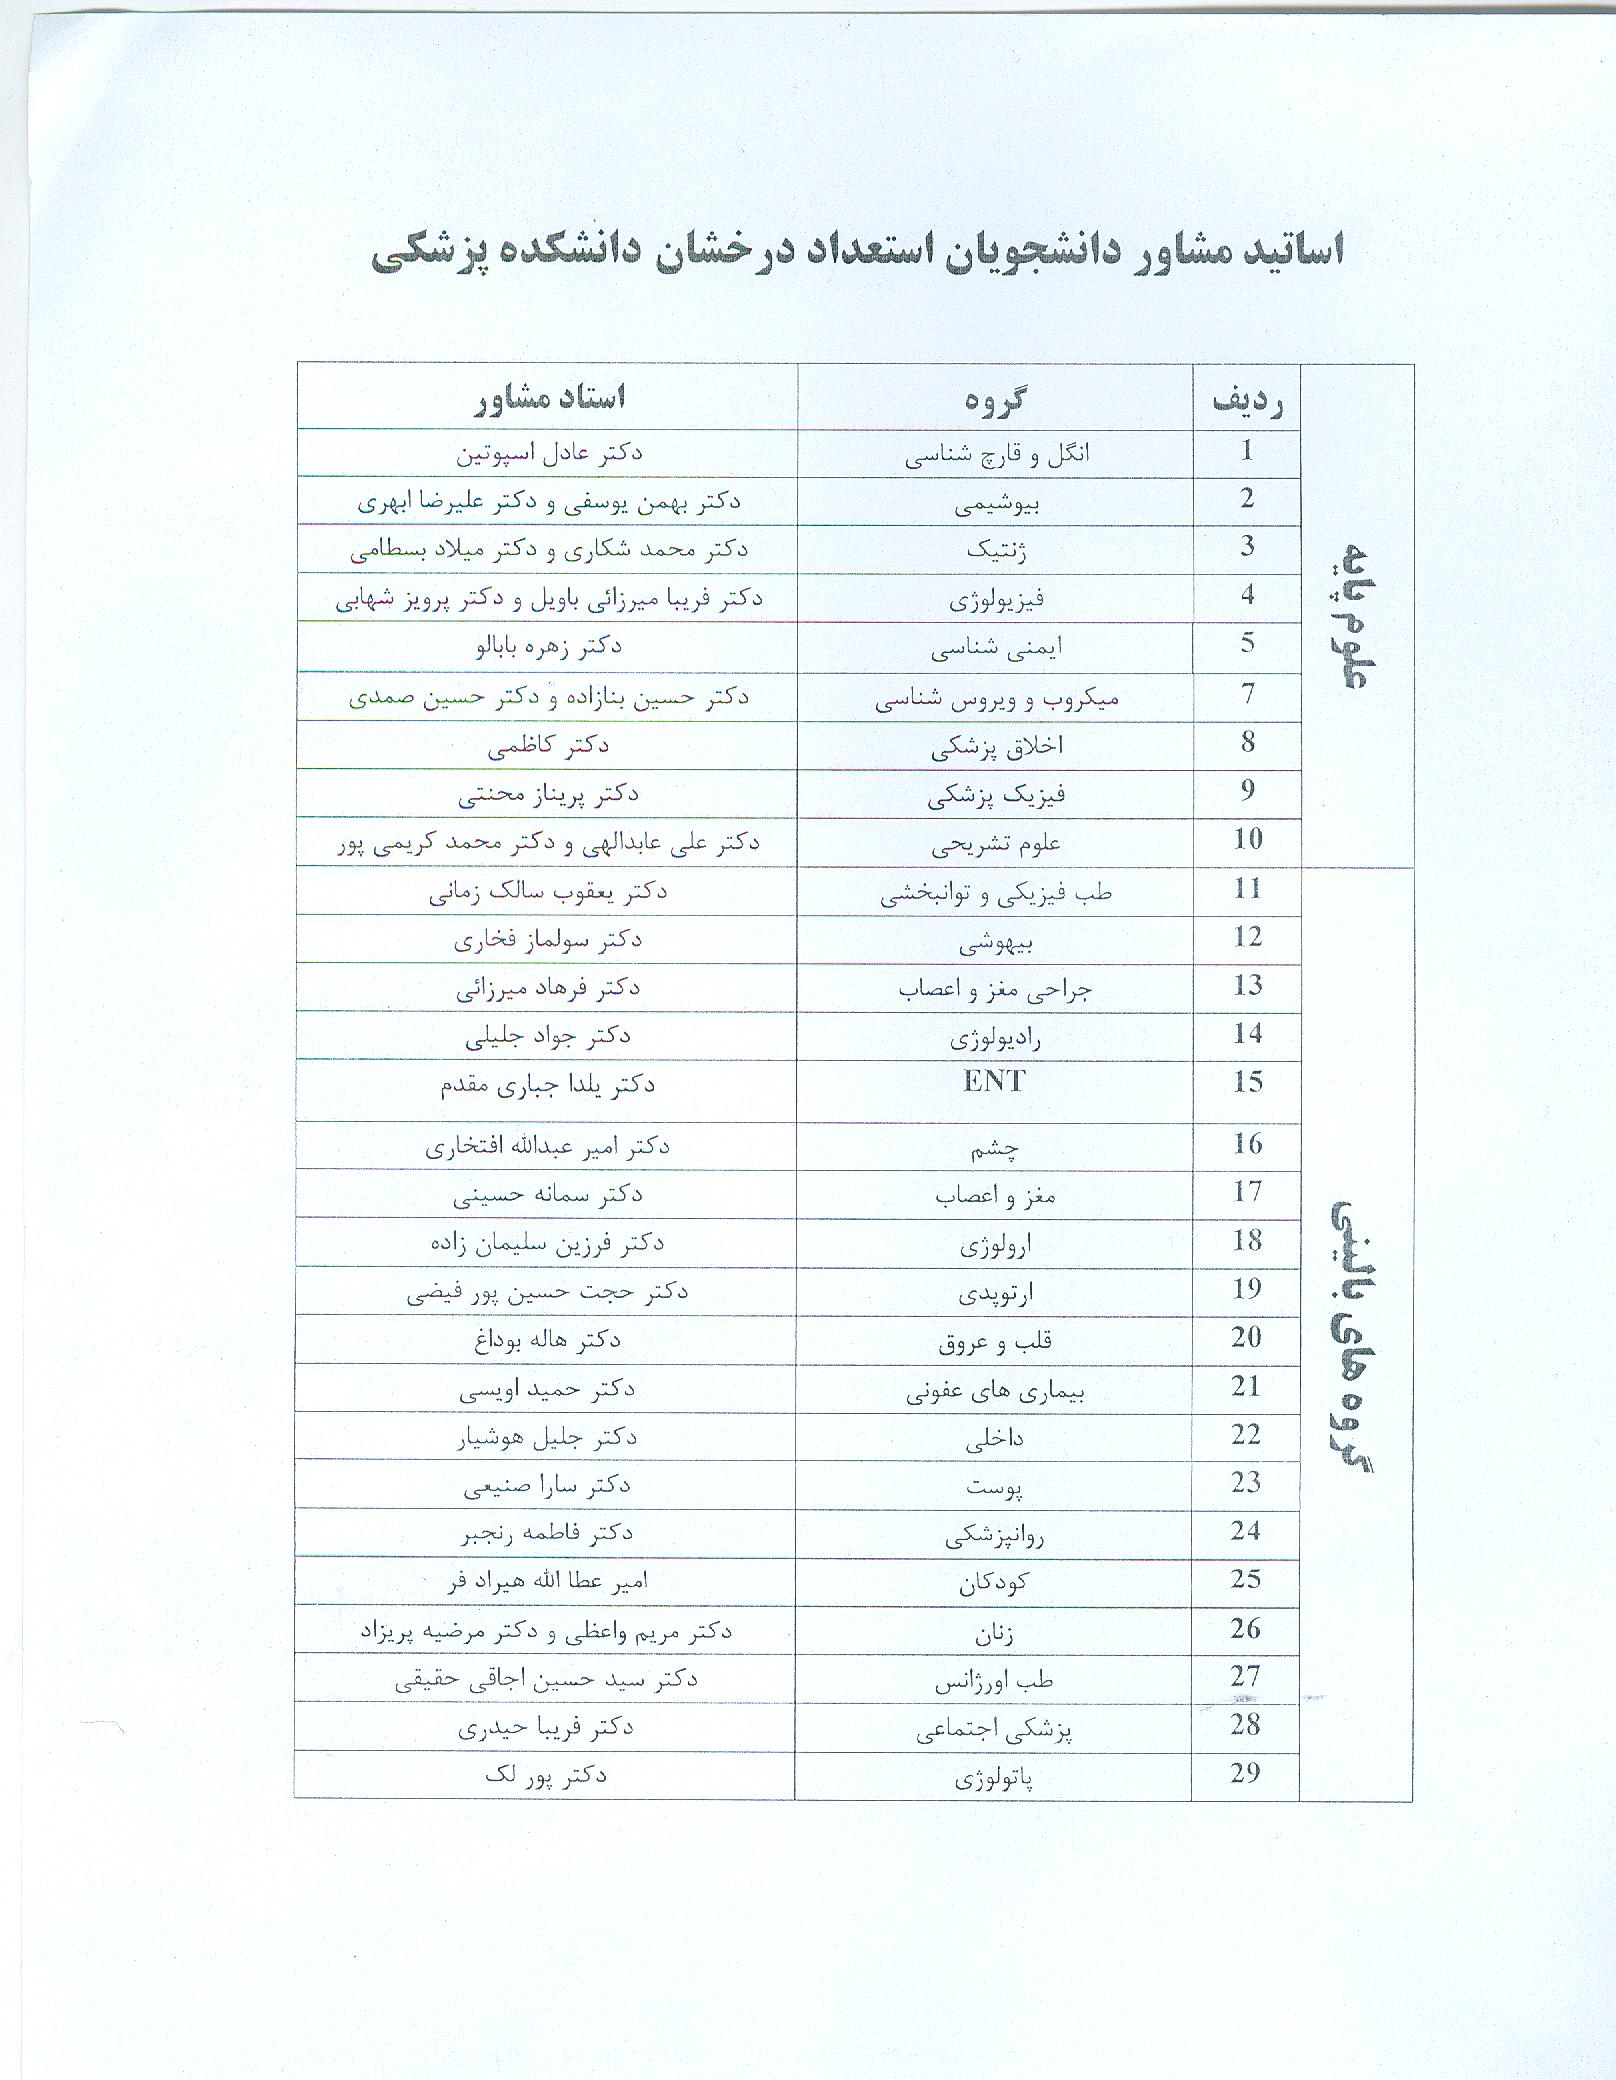 اساتید مشاور دانشجویان استعداد درخشان دانشکده پزشکی
ردیف گروه استاد مشاور
علوم پایه
1 انگل و قارچ شناسی دکتر عادل اسپوتین
2 بیوشیمی دکتر بهمن یوسفی و دکتر علیرضا ابهری
3 ژنتیک دکتر محمد شکاری و دکتر میلاد بسطامی
4 فیزیولوژی دکتر فریبا میرزائی باویل و دکتر پرویز شهابی
5 ایمنی شناسی دکتر زهره بابالو
7 میکروب و ویروس شناسی دکتر حسین بنازاده و دکتر حسین صمدی
8 اخلاق پزشکی دکتر کاظمی
9 فیزیک پزشکی دکتر پریناز محنتی
10 علوم تشریحی دکتر علی عابدالهی و دکتر محمد کریمی پور
گروه های بالینی
11 طب فیزیکی و توانبخشی دکتر یعقوب سالک زمانی
12 بیهوشی دکتر سولماز فخاری
13 جراحی مغز و اعصاب دکتر فرهاد میرزائی
14 رادیولوژی دکتر جواد جلیلی
15 ENT دکتر یلدا جباری مقدم
16 چشم دکتر امیر عبدالله افتخاری
17 مغز و اعصاب دکتر سمانه حسینی
18 ارولوژی دکتر فرزین سلیمان زاده
19 ارتوپدی دکتر حجت حسین پور فیضی
20 قلب و عروق دکتر هاله بوداغ
21 بیماری های عفونی دکتر حمید اویسی
22 داخلی دکتر جلیل هوشیار
23 پوست دکتر سارا صنیعی
24 روانپزشکی دکتر فاطمه رنجبر
25 کودکان امیر عطا الله هیراد فر
26 زنان دکتر مریم واعظی و دکتر مرضیه پریزاد
27 طب اورژانس دکتر سید حسین اجاقی حقیقی
28 پزشکی اجتماعی دکتر فریبا حیدری
29 پاتولوژی دکتر پور لک